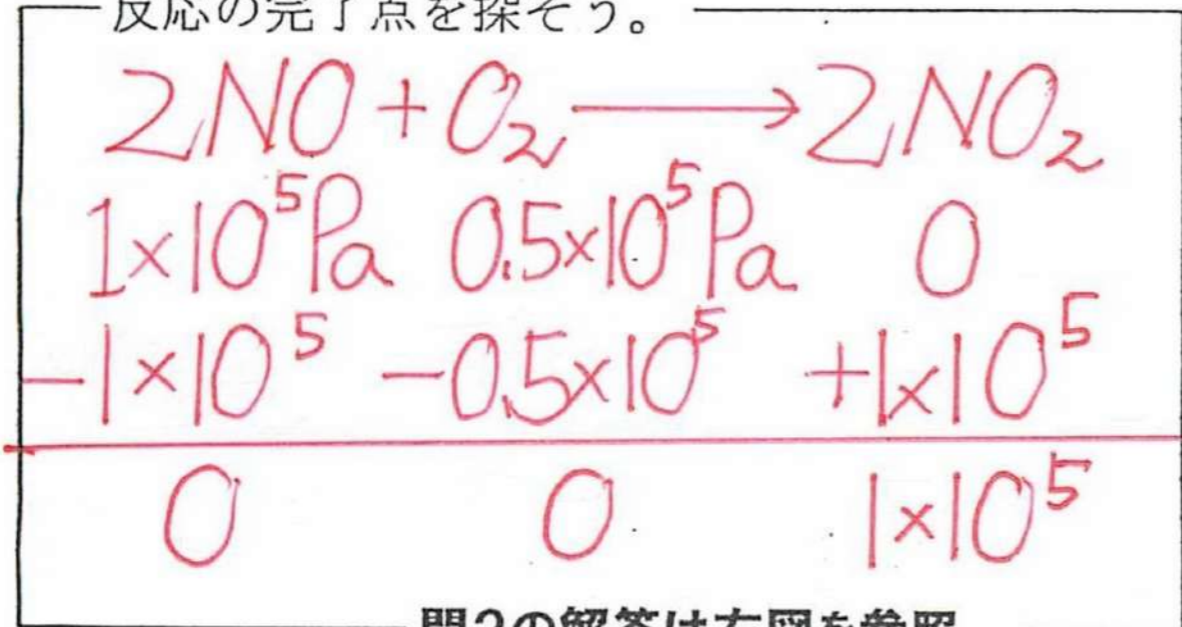 反応の完了点を探そう。
2NO + O₂ ⟶ 2NO₂
1×10⁵Pa 0.5×10⁵Pa 0
−1×10⁵ −0.5×10⁵ +1×10⁵
0 0 1×10⁵
問2の解答は右図を参照